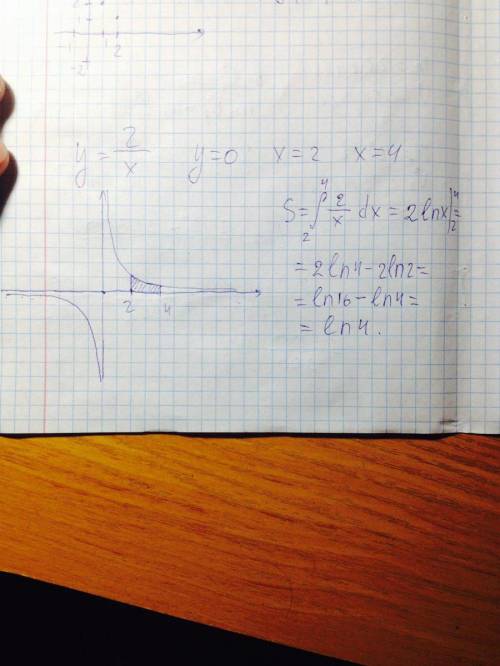 2
1
-1 1 2
-2
y = 2/x y=0 x=2 x=4
S = ∫₂⁴ 2/x dx = 2lnx|₂⁴ =
= 2ln4 - 2ln2 =
= ln16 - ln4 =
= ln4.
2 4